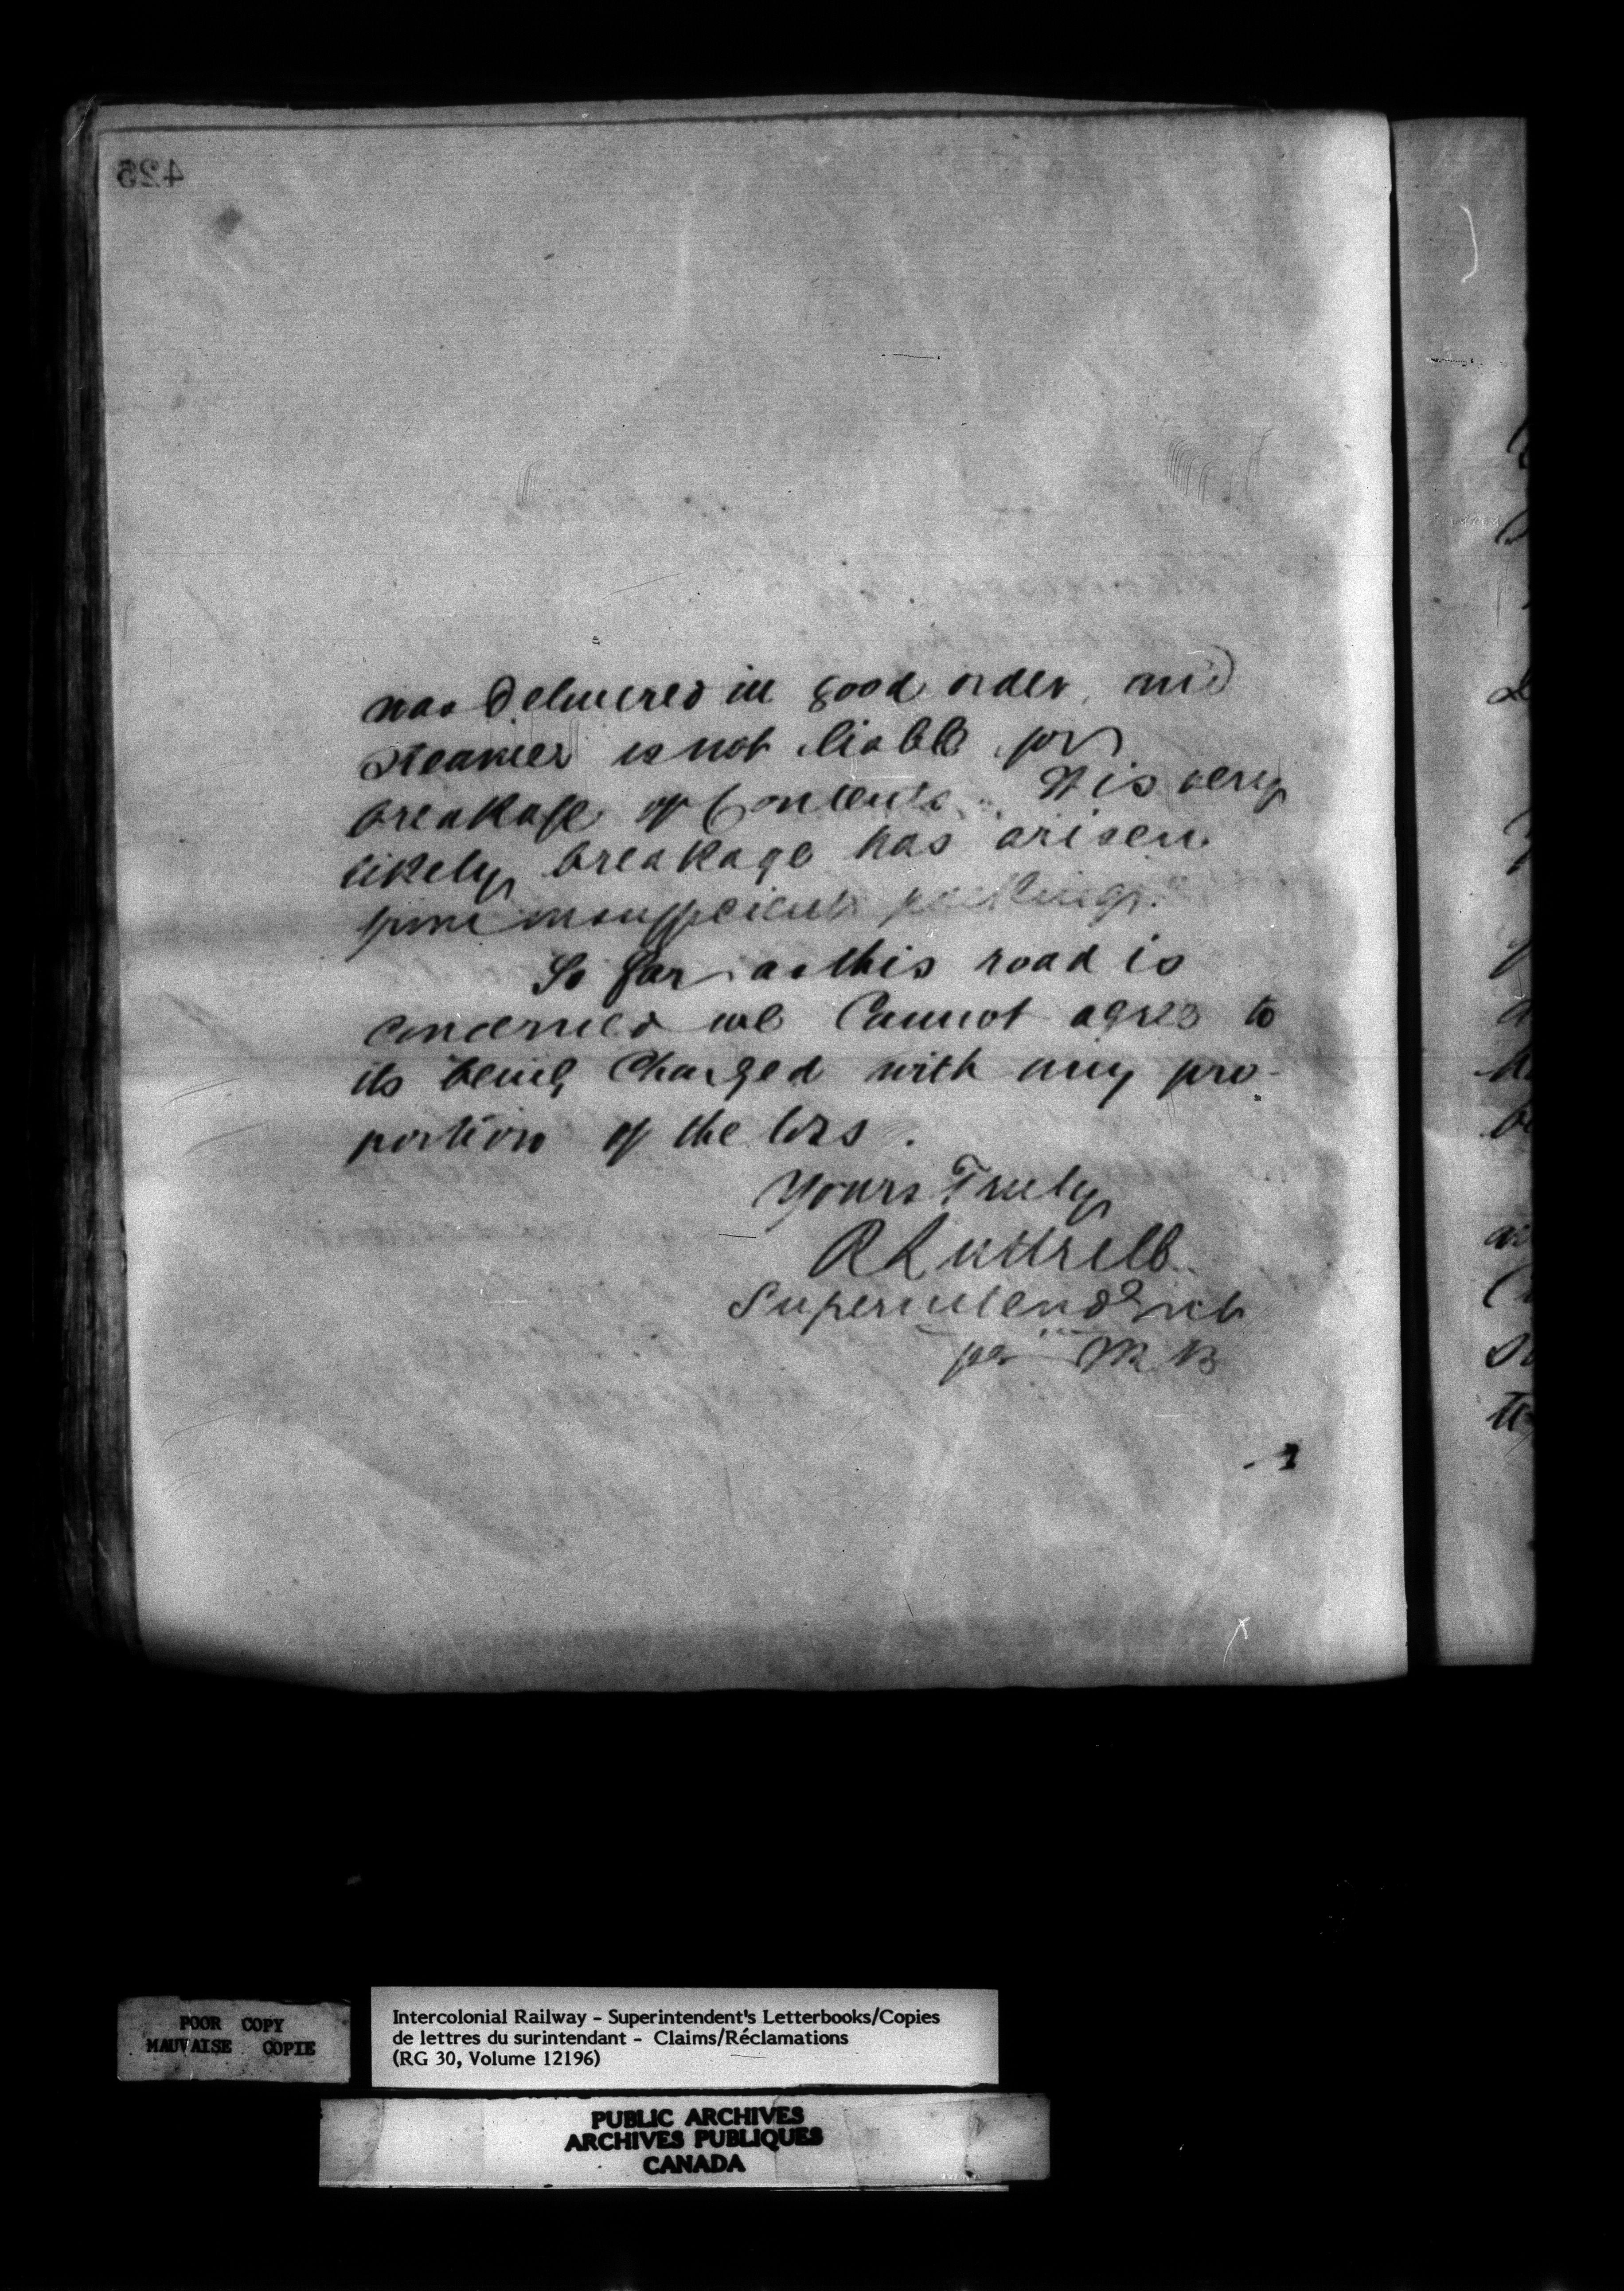 425
was delivered in good order, and
steamer is not liable for
breakage of Contents. It is very
likely breakage has arisen
from insufficient packing."
So far as this road is
concerned we Cannot agree to
its being Charged with any pro-
portion of the loss.
Yours Truly
R Luttrell
Superintendent
per
POOR COPY
MAUVAISE COPIE
Intercolonial Railway - Superintendent's Letterbooks/Copies
de lettres du surintendant - Claims/Réclamations
(RG 30, Volume 12196)
PUBLIC ARCHIVES
ARCHIVES PUBLIQUES
CANADA